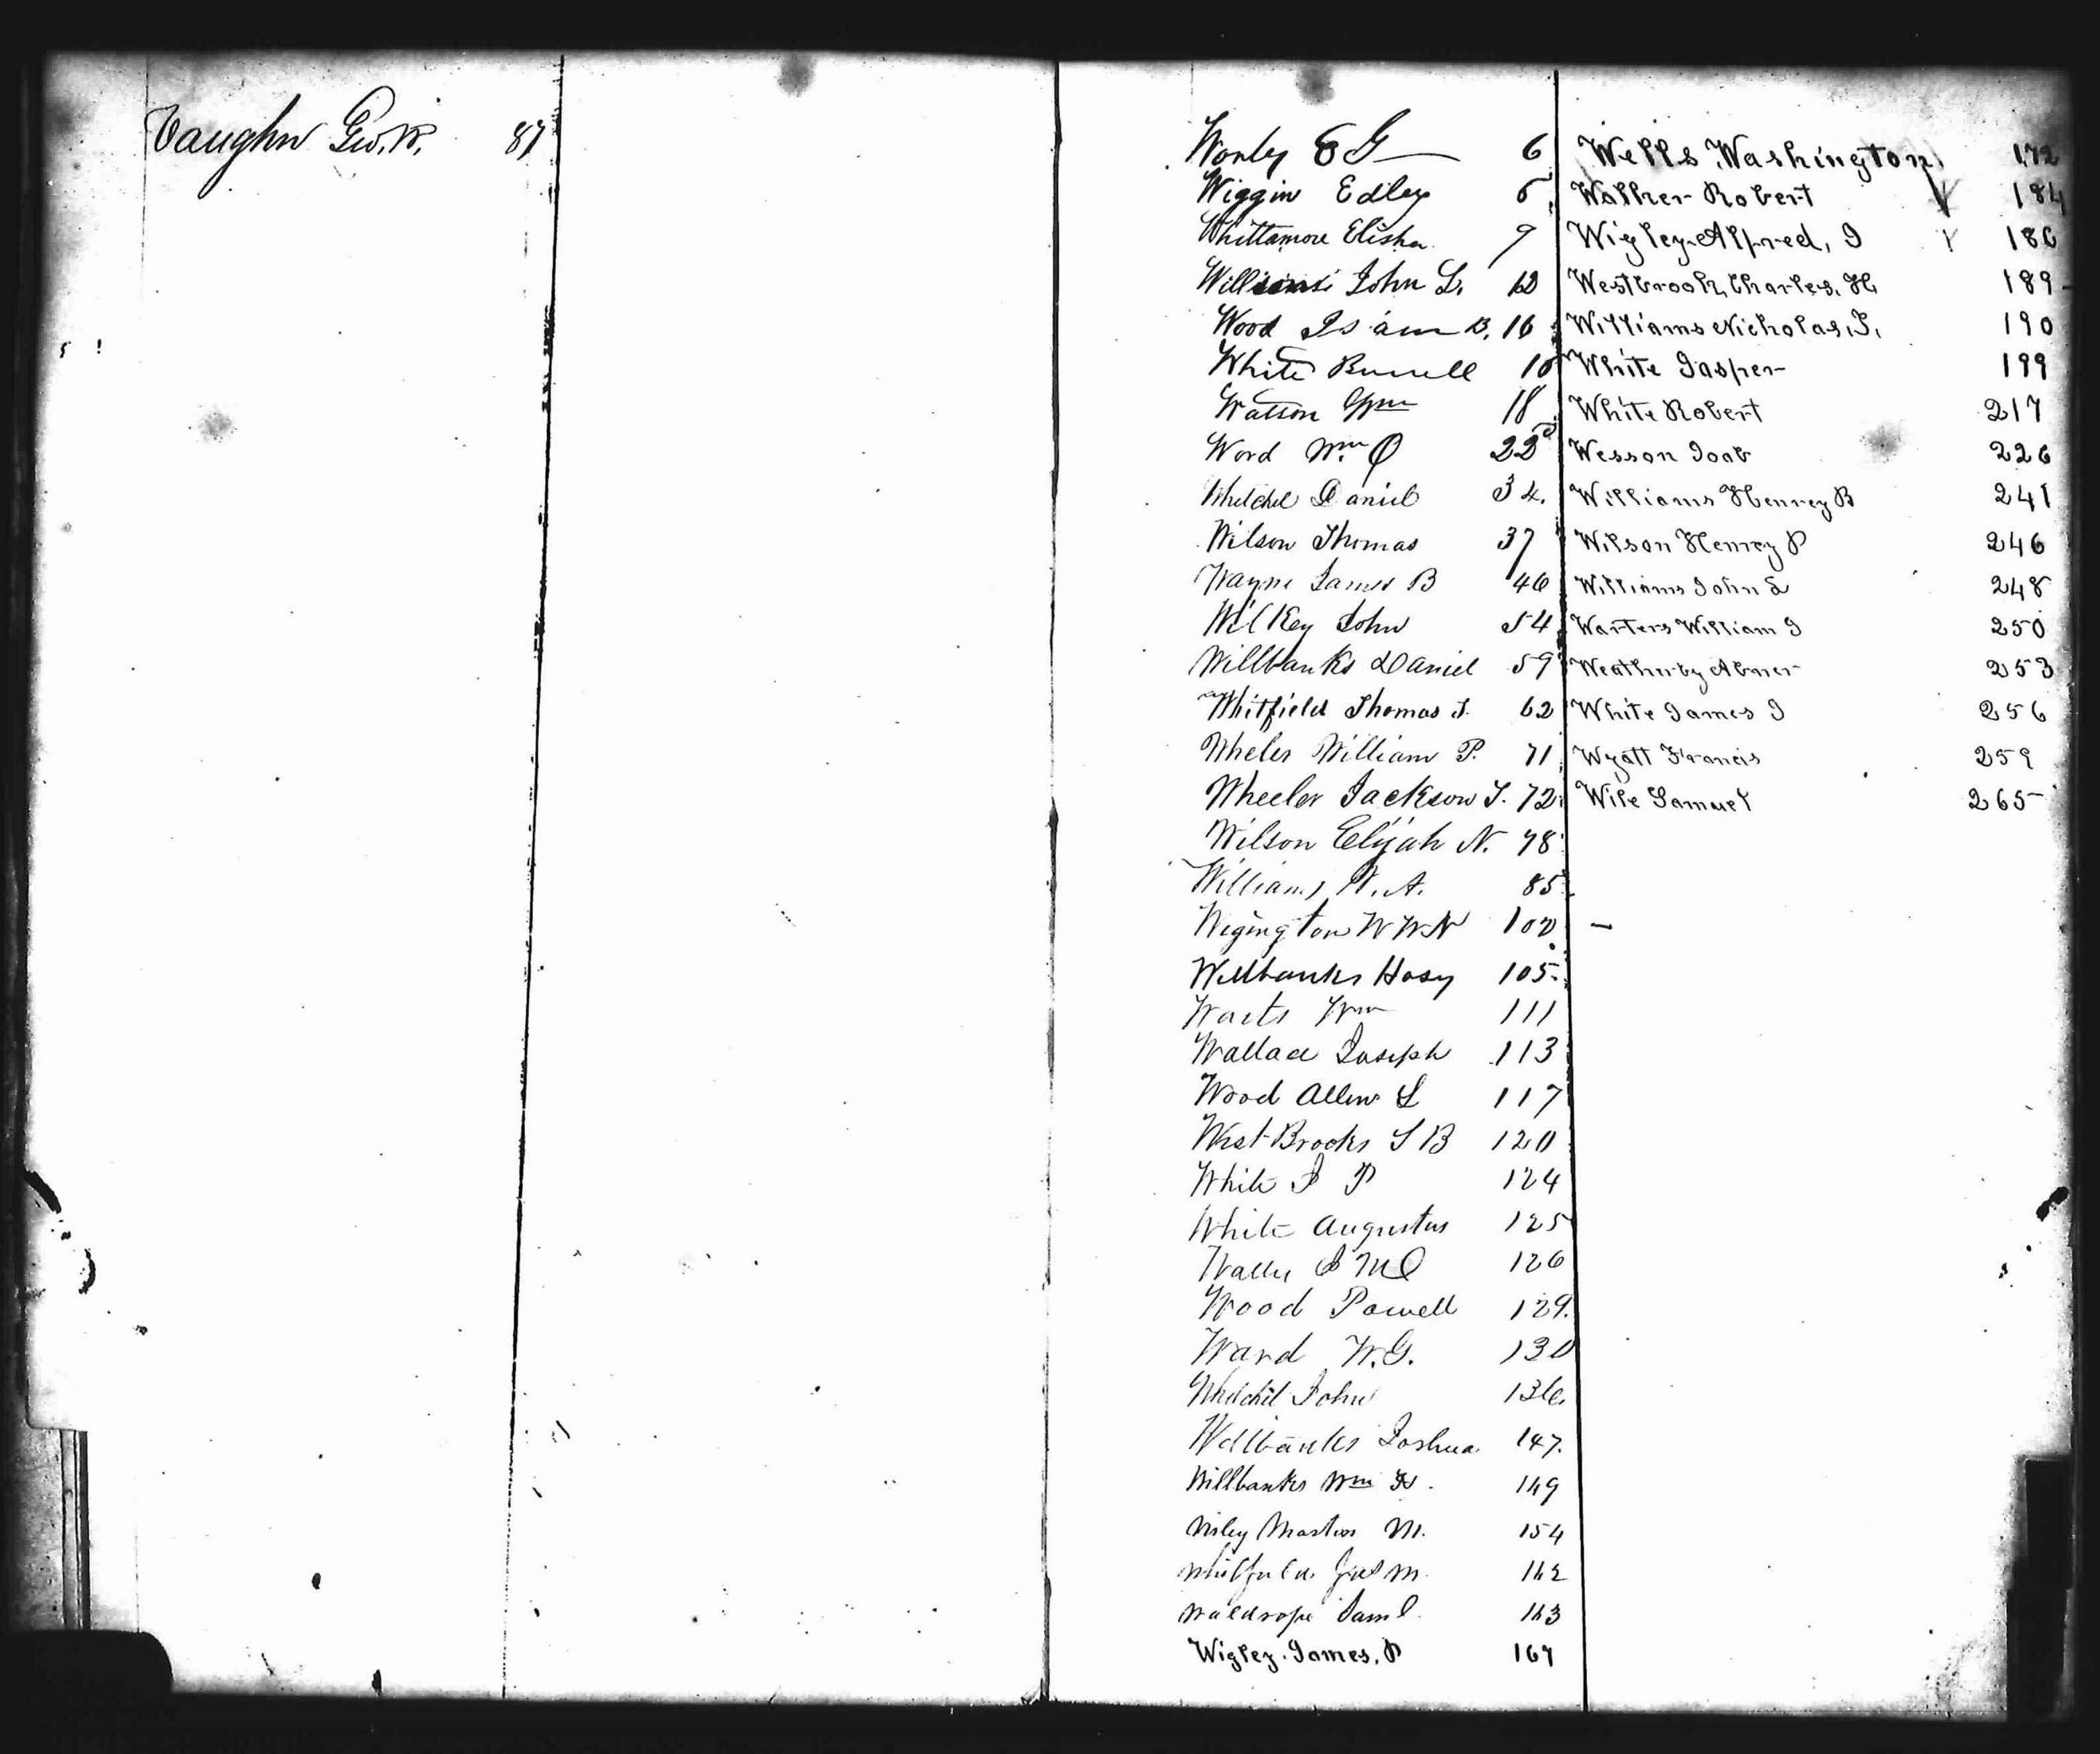 Vaughn Geo. W. 87
Worley E G 6
Wiggin Edley 6
Whittamore Elisha 9
Williams John L. 12
Wood Isam B. 16
White Burrell 18
Watson Wm 18
Word Wm O 22
Whelchel Daniel 34.
Wilson Thomas 37
Wayne James B 46
WilKey John 54
Willbanks Daniel 59
Whitfield Thomas J. 62
Wheler William P. 71
Wheeler Jackson J. 72
Wilson Elijah N. 78
Williams W. A. 85
Wigington W W N 102
Willbanks Hosy 105
Waits Wm 111
Wallace Joseph 113
Wood Allen L 117
West Brooks S B 120
White J P 124
White Augustus 125
J Mc 126
Wood Powell 129.
Ward W. G. 130
Whelchel John 136.
Willbanks Joshua 147.
Willbanks Wm H. 149
Wiley Martin M. 154
M. 162
Waldrope Saml. 163
Wigley. James. P 167
Wells Washington 172
Walker Robert 184
Wigley Alfred, J 186
Westbrook, Charles, H, 189
Williams Nicholas, J, 190
White Jasper 199
White Robert 217
Wesson Joab 226
Williams Henrey B 241
Wilson Henrey P 246
Williams John L 248
Warters William J 250
Weatherby Abner 253
White James J 256
Wyatt Francis 259
Wile Samuel 265